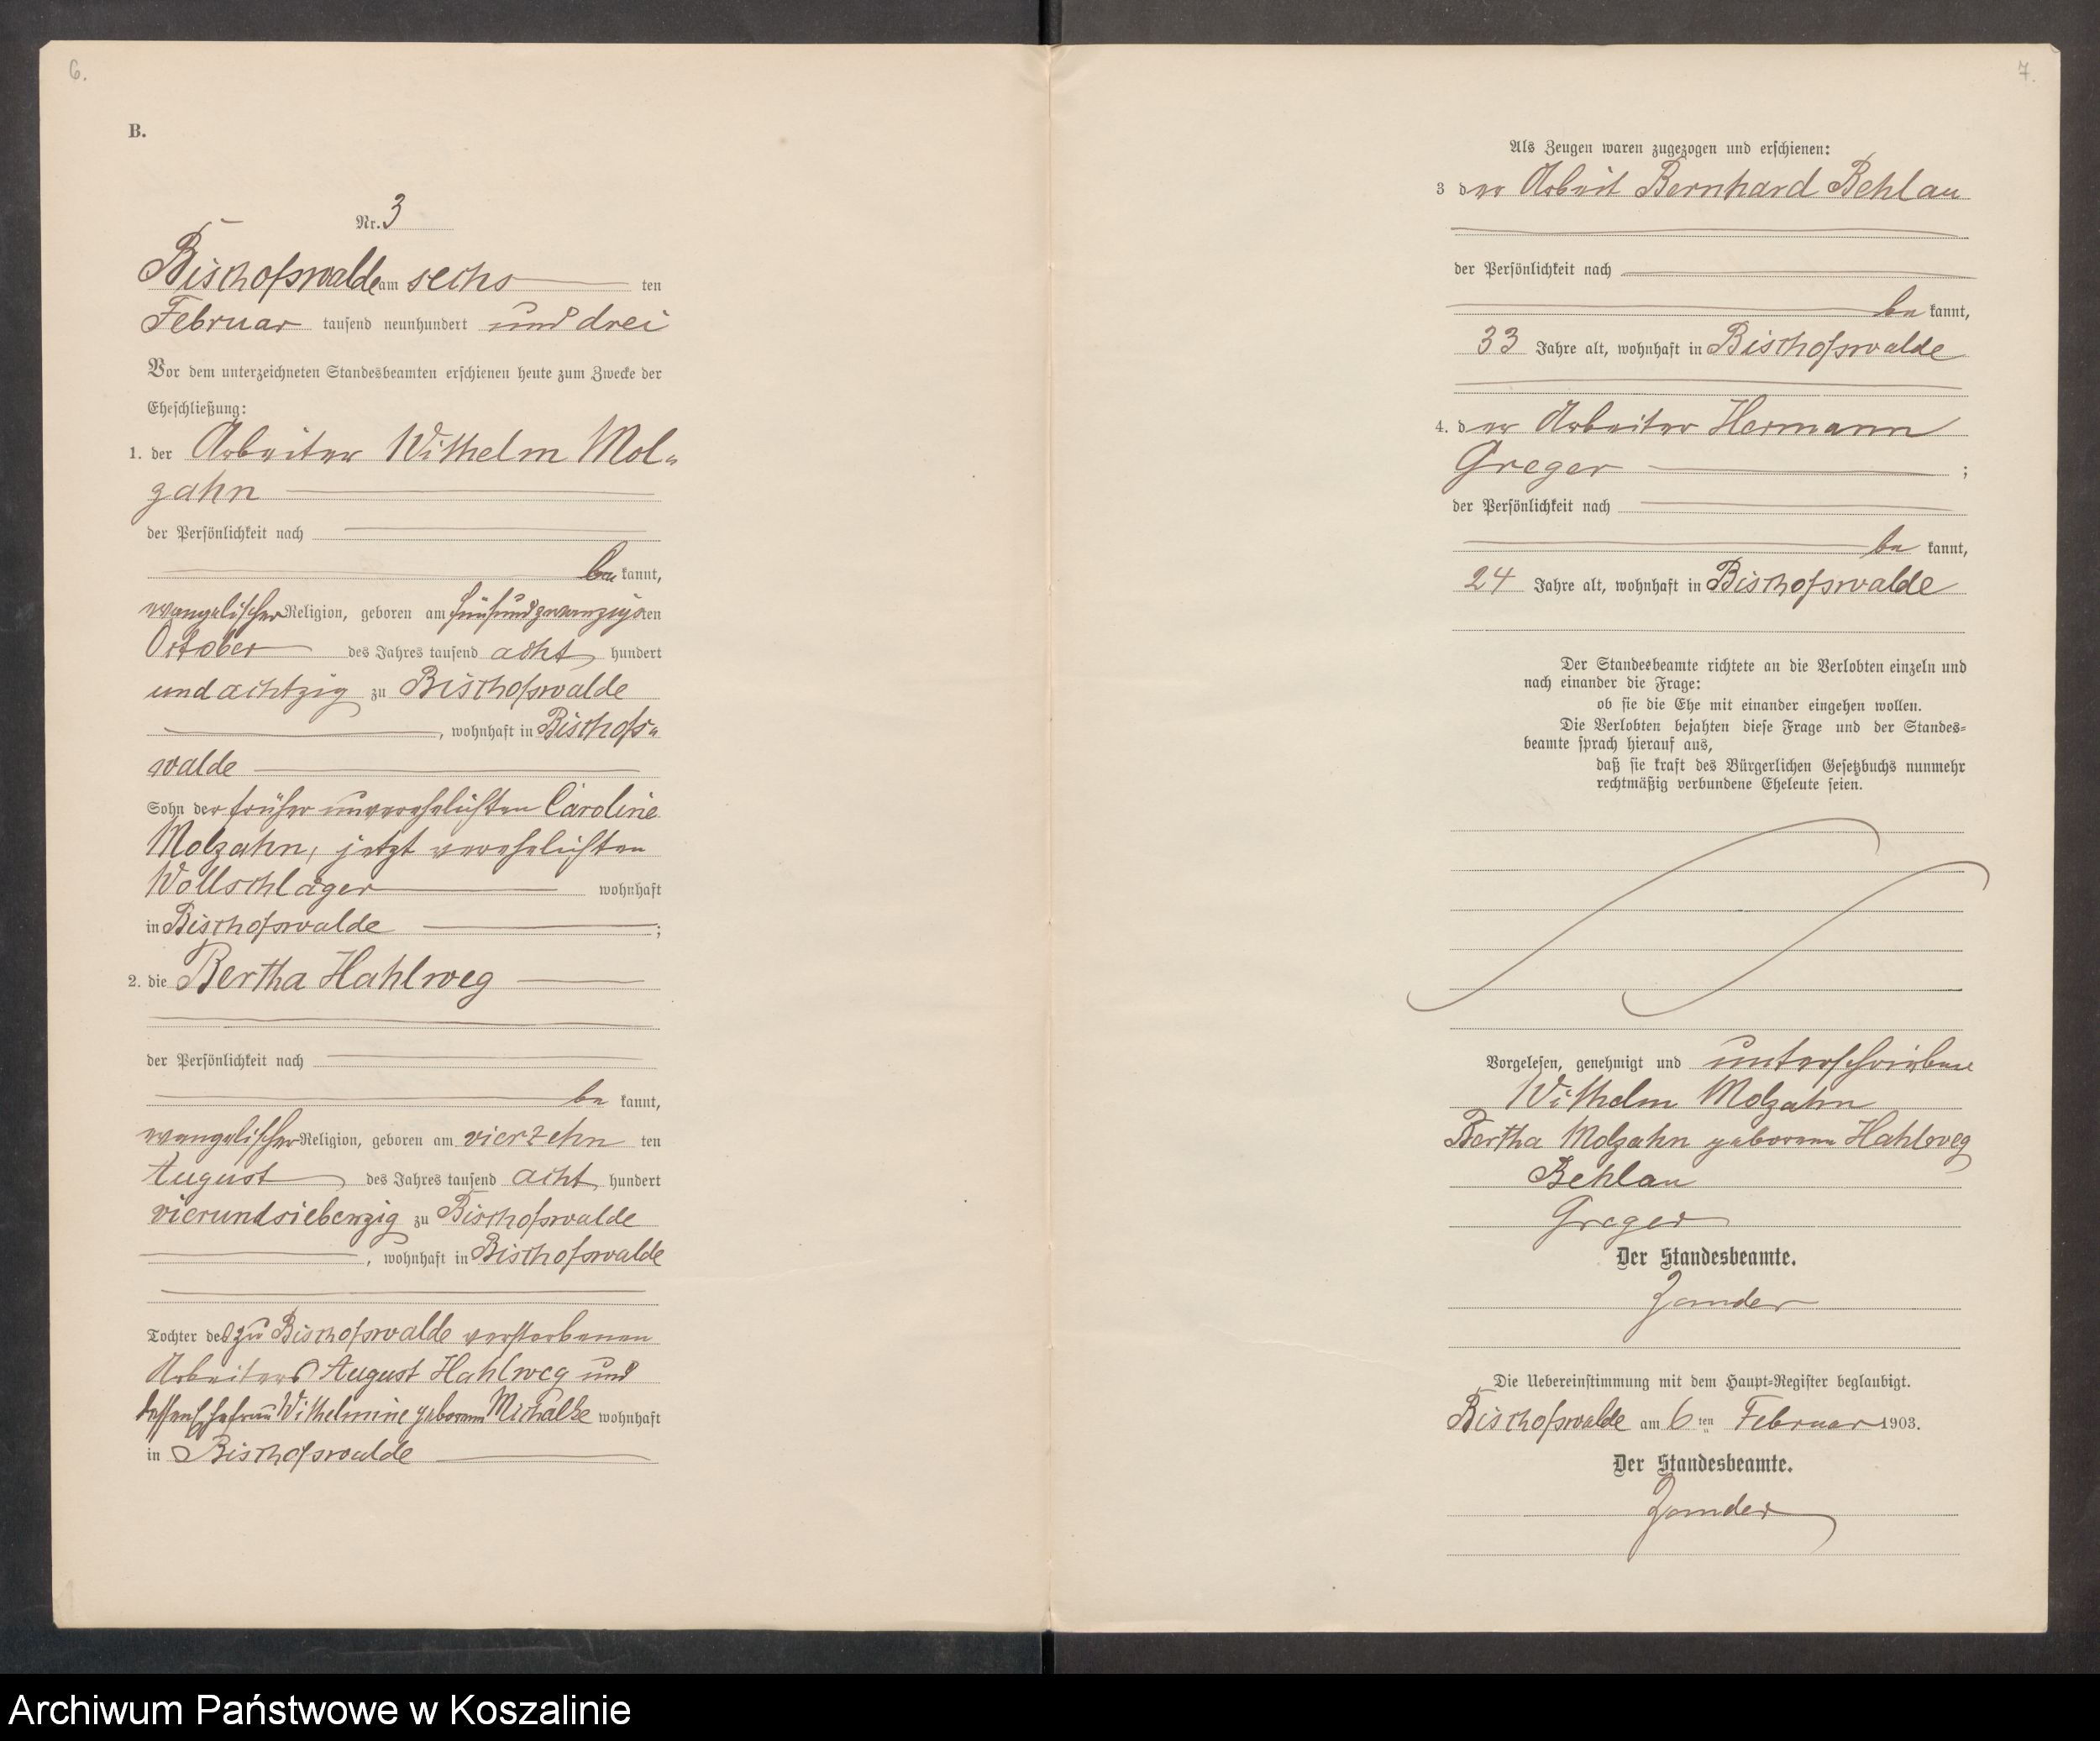 6.
B.
Nr. 3
Bischofswalde am sechs ten
Februar tausend neunhundert und drei
Vor dem unterzeichneten Standesbeamten erschienen heute zum Zwecke der
Eheschließung:
1. der Arbeiter Wilhelm Mol-
zahn
der Persönlichkeit nach
be kannt,
evangelischer Religion, geboren am fünfundzwanzigsten
October des Jahres tausend acht hundert
und achtzig zu Bischofswalde
, wohnhaft in Bischofs-
walde
Sohn der früher unverehelichten Caroline
Molzahn, jetzt verehelichten
Wollschläger wohnhaft
in Bischofswalde ;
2. die Bertha Hahlweg
der Persönlichkeit nach
be kannt,
evangelischer Religion, geboren am vierzehn ten
August des Jahres tausend acht hundert
vierundsiebenzig zu Bischofswalde
, wohnhaft in Bischofswalde
Tochter des zu Bischofswalde verstorbenen
Arbeiters August Hahlweg und
dessen Ehefrau Wilhelmine geborenen Michalke wohnhaft
in Bischofswalde
7.
Als Zeugen waren zugezogen und erschienen:
3 der Arbeit Bernhard Behlau
der Persönlichkeit nach
be kannt,
33 Jahre alt, wohnhaft in Bischofswalde
4. der Arbeiter Hermann
Greger ;
der Persönlichkeit nach
be kannt,
24 Jahre alt, wohnhaft in Bischofswalde
Der Standesbeamte richtete an die Verlobten einzeln und
nach einander die Frage:
ob sie die Ehe mit einander eingehen wollen.
Die Verlobten bejahten diese Frage und der Standes-
beamte sprach hierauf aus,
daß sie kraft des Bürgerlichen Gesetzbuchs nunmehr
rechtmäßig verbundene Eheleute seien.
Vorgelesen, genehmigt und unterschrieben
Wilhelm Molzahn
Bertha Molzahn geborene Hahlweg
Behlau
Greger
Der Standesbeamte.
Zander
Die Uebereinstimmung mit dem Haupt-Register beglaubigt.
Bischofswalde am 6 ten Februar 1903.
Der Standesbeamte.
Zander
Archiwum Państwowe w Koszalinie